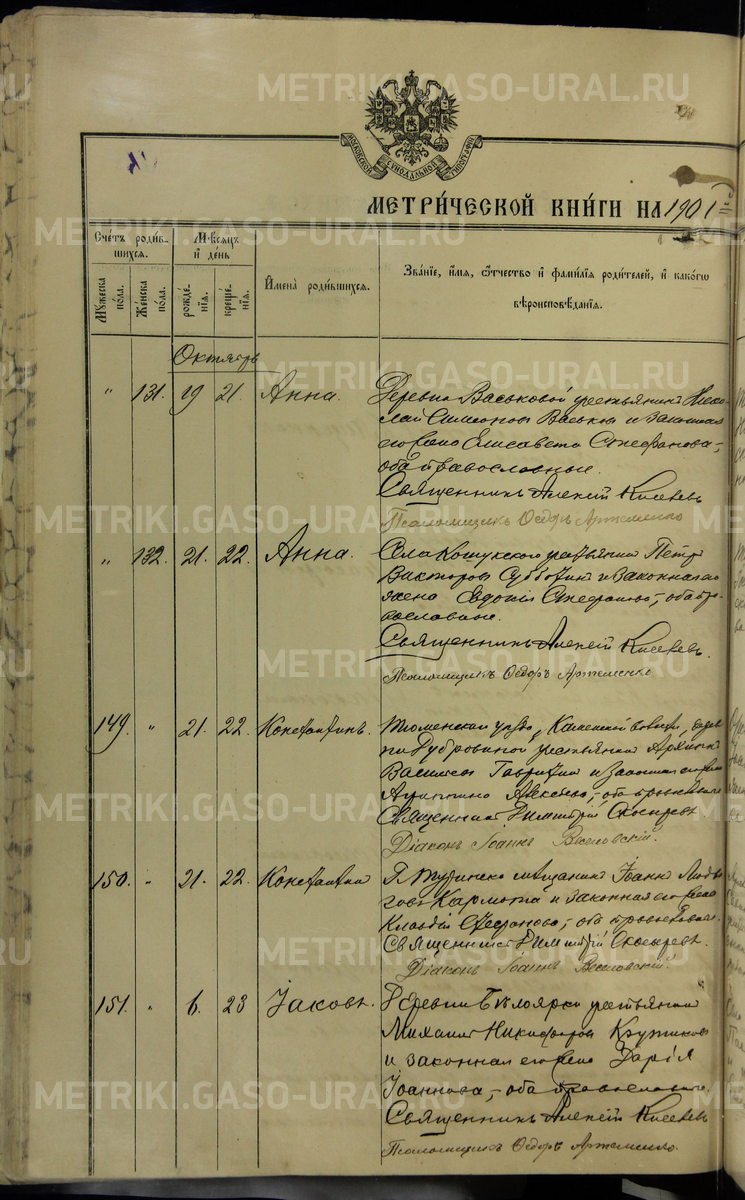 METRIKI.GASO-URAL.RU
МОСКОВСКОЙ СѴНОДАЛЬНОЙ ТИПОГРАФІИ
МЕТРИ́ЧЕСКОЙ КНИ́ГИ НА 1901 г.
Сче́тъ роди́в-
шихся.
Мѣ́сяцъ
и҆ де́нь
Му́жеска
по́ла.
Же́нска
по́ла.
рожде́-
нїѧ.
креще́-
нїѧ.
И҆мена̀ роди́вшихся.
Зва́нїе, и҆́мя, ѻ҆́тчество и҆ фами́лїѧ роди́телей, и҆ како́гѡ
вѣроисповѣ́данїѧ.
Октябрь
" 131. 19 21. Анна. Деревни Васьковой крестьянинъ Нико-
лай Симеоновъ Васьковъ и законная
его жена Елисавета Стефанова,-
оба православные.
Священникъ Алексій Киселевъ
Псаломщикъ Ѳедоръ Артеменко
" 132. 21. 22. Анна. Села Кошукского крестьянинъ Петръ
Викторовъ Субботинъ и законная его
жена Евдокія Стефанова,- оба пра-
вославные.
Священникъ Алексій Киселевъ.
Псаломщикъ Ѳедоръ Артеменко
149. " 21. 22. Константинъ. Тюменскаго уѣзда, Каменской волости, дерев-
ни Дубровиной крестьянинъ
Василіевъ и законная его жена
оба православные
Священникъ Димитрій
Діаконъ Іоаннъ Веселовскій.
150. " 21. 22. Константинъ Туринскій мѣщанинъ Іоаннъ
и законная его жена
Клавдія Стефанова,- оба православные.
Священникъ Димитрій
Діаконъ Іоаннъ Веселовскій.
151. " 6. 23 Іаковъ. Деревни Бѣлоярки крестьянинъ
Михаилъ Никифоровъ Крутиковъ
и законная его жена Дарія
Іоаннова,- оба православные.
Священникъ Алексій Киселевъ
Псаломщикъ Ѳедоръ Артеменко.